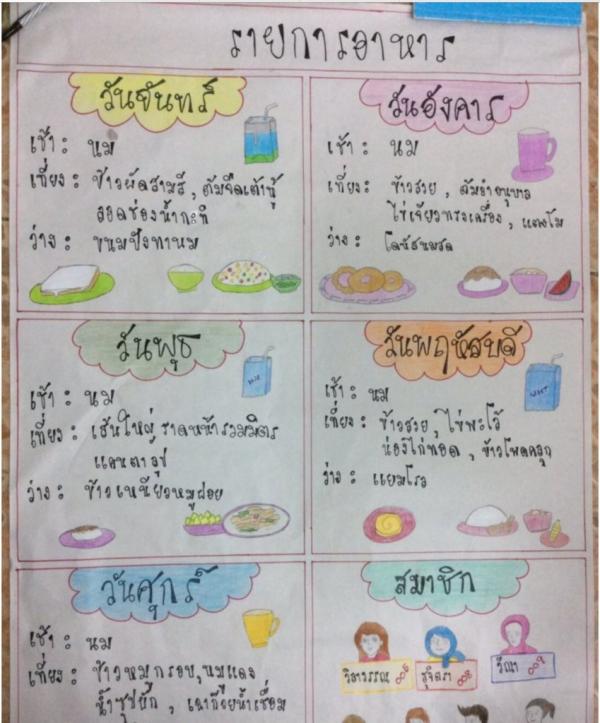 รายการอาหาร
วันจันทร์
เช้า : นม
เที่ยง : ข้าวผัดสามสี , ต้มจืดเต้าหู้
ลอดช่องน้ำกะทิ
ว่าง : ขนมปังทานม
วันอังคาร
เช้า : นม
เที่ยง : ข้าวสวย , ส้มตำอนุบาล
ไข่เจียวทรงเครื่อง , แตงโม
ว่าง : โดนัสนมสด
วันพุธ
เช้า : นม
เที่ยง : เส้นใหญ่ราดหน้ารวมมิตร
แคนตาลูป
ว่าง : ข้าวเหนียวหมูฝอย
วันพฤหัสบดี
เช้า : นม
เที่ยง : ข้าวสวย , ไข่พะโล้
น่องไก่ทอด , ข้าวโพดคลุก
ว่าง : แยมโรล
วันศุกร์
เช้า : นม
เที่ยง : ข้าวหมูกรอบ , นมแดง
น้ำซุปผัก , เฉาก๊วยน้ำเชื่อม
สมาชิก
วิลาวรรณ 006
สุจิตรา 008
วีณา 009